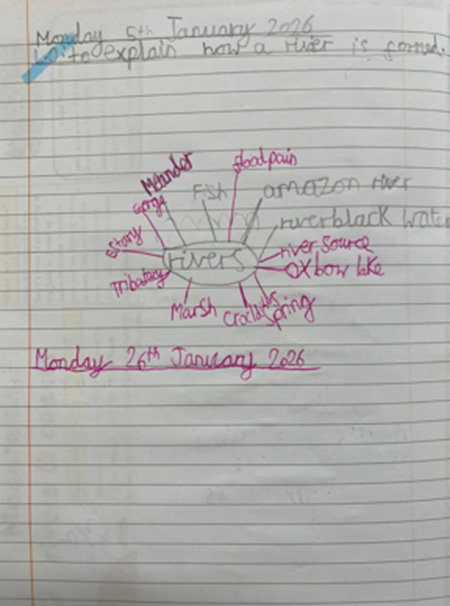 Monday 5th January 2026
L.O to explain how a river is formed.
Meander
floodpain
Fish
amazon river
Gorge
river black water
Estary
rivers
river source
oxbow lake
Tributary
Marsh
Spring
Monday 26th January 2026